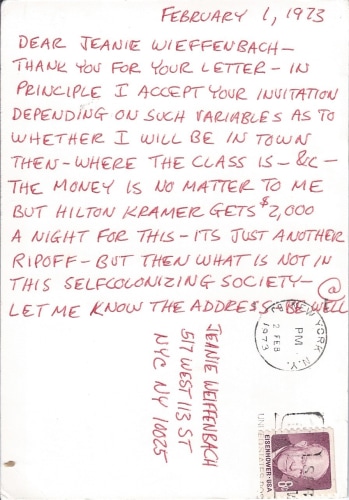 FEBRUARY 1, 1973
DEAR JEANIE WIEFFENBACH—
THANK YOU FOR YOUR LETTER — IN
PRINCIPLE I ACCEPT YOUR INVITATION
DEPENDING ON SUCH VARIABLES AS TO
WHETHER I WILL BE IN TOWN
THEN — WHERE THE CLASS IS — &c —
THE MONEY IS NO MATTER TO ME
BUT HILTON KRAMER GETS $2,000
A NIGHT FOR THIS — ITS JUST ANOTHER
RIPOFF — BUT THEN WHAT IS NOT IN
THIS SELFCOLONIZING SOCIETY — @
LET ME KNOW THE ADDRESS. BE WELL
JEANIE WEIFFENBACH
517 WEST 113 ST
NYC NY 10025
NEW YORK, N.Y.
PM
2 FEB
1973
EISENHOWER·USA
8c